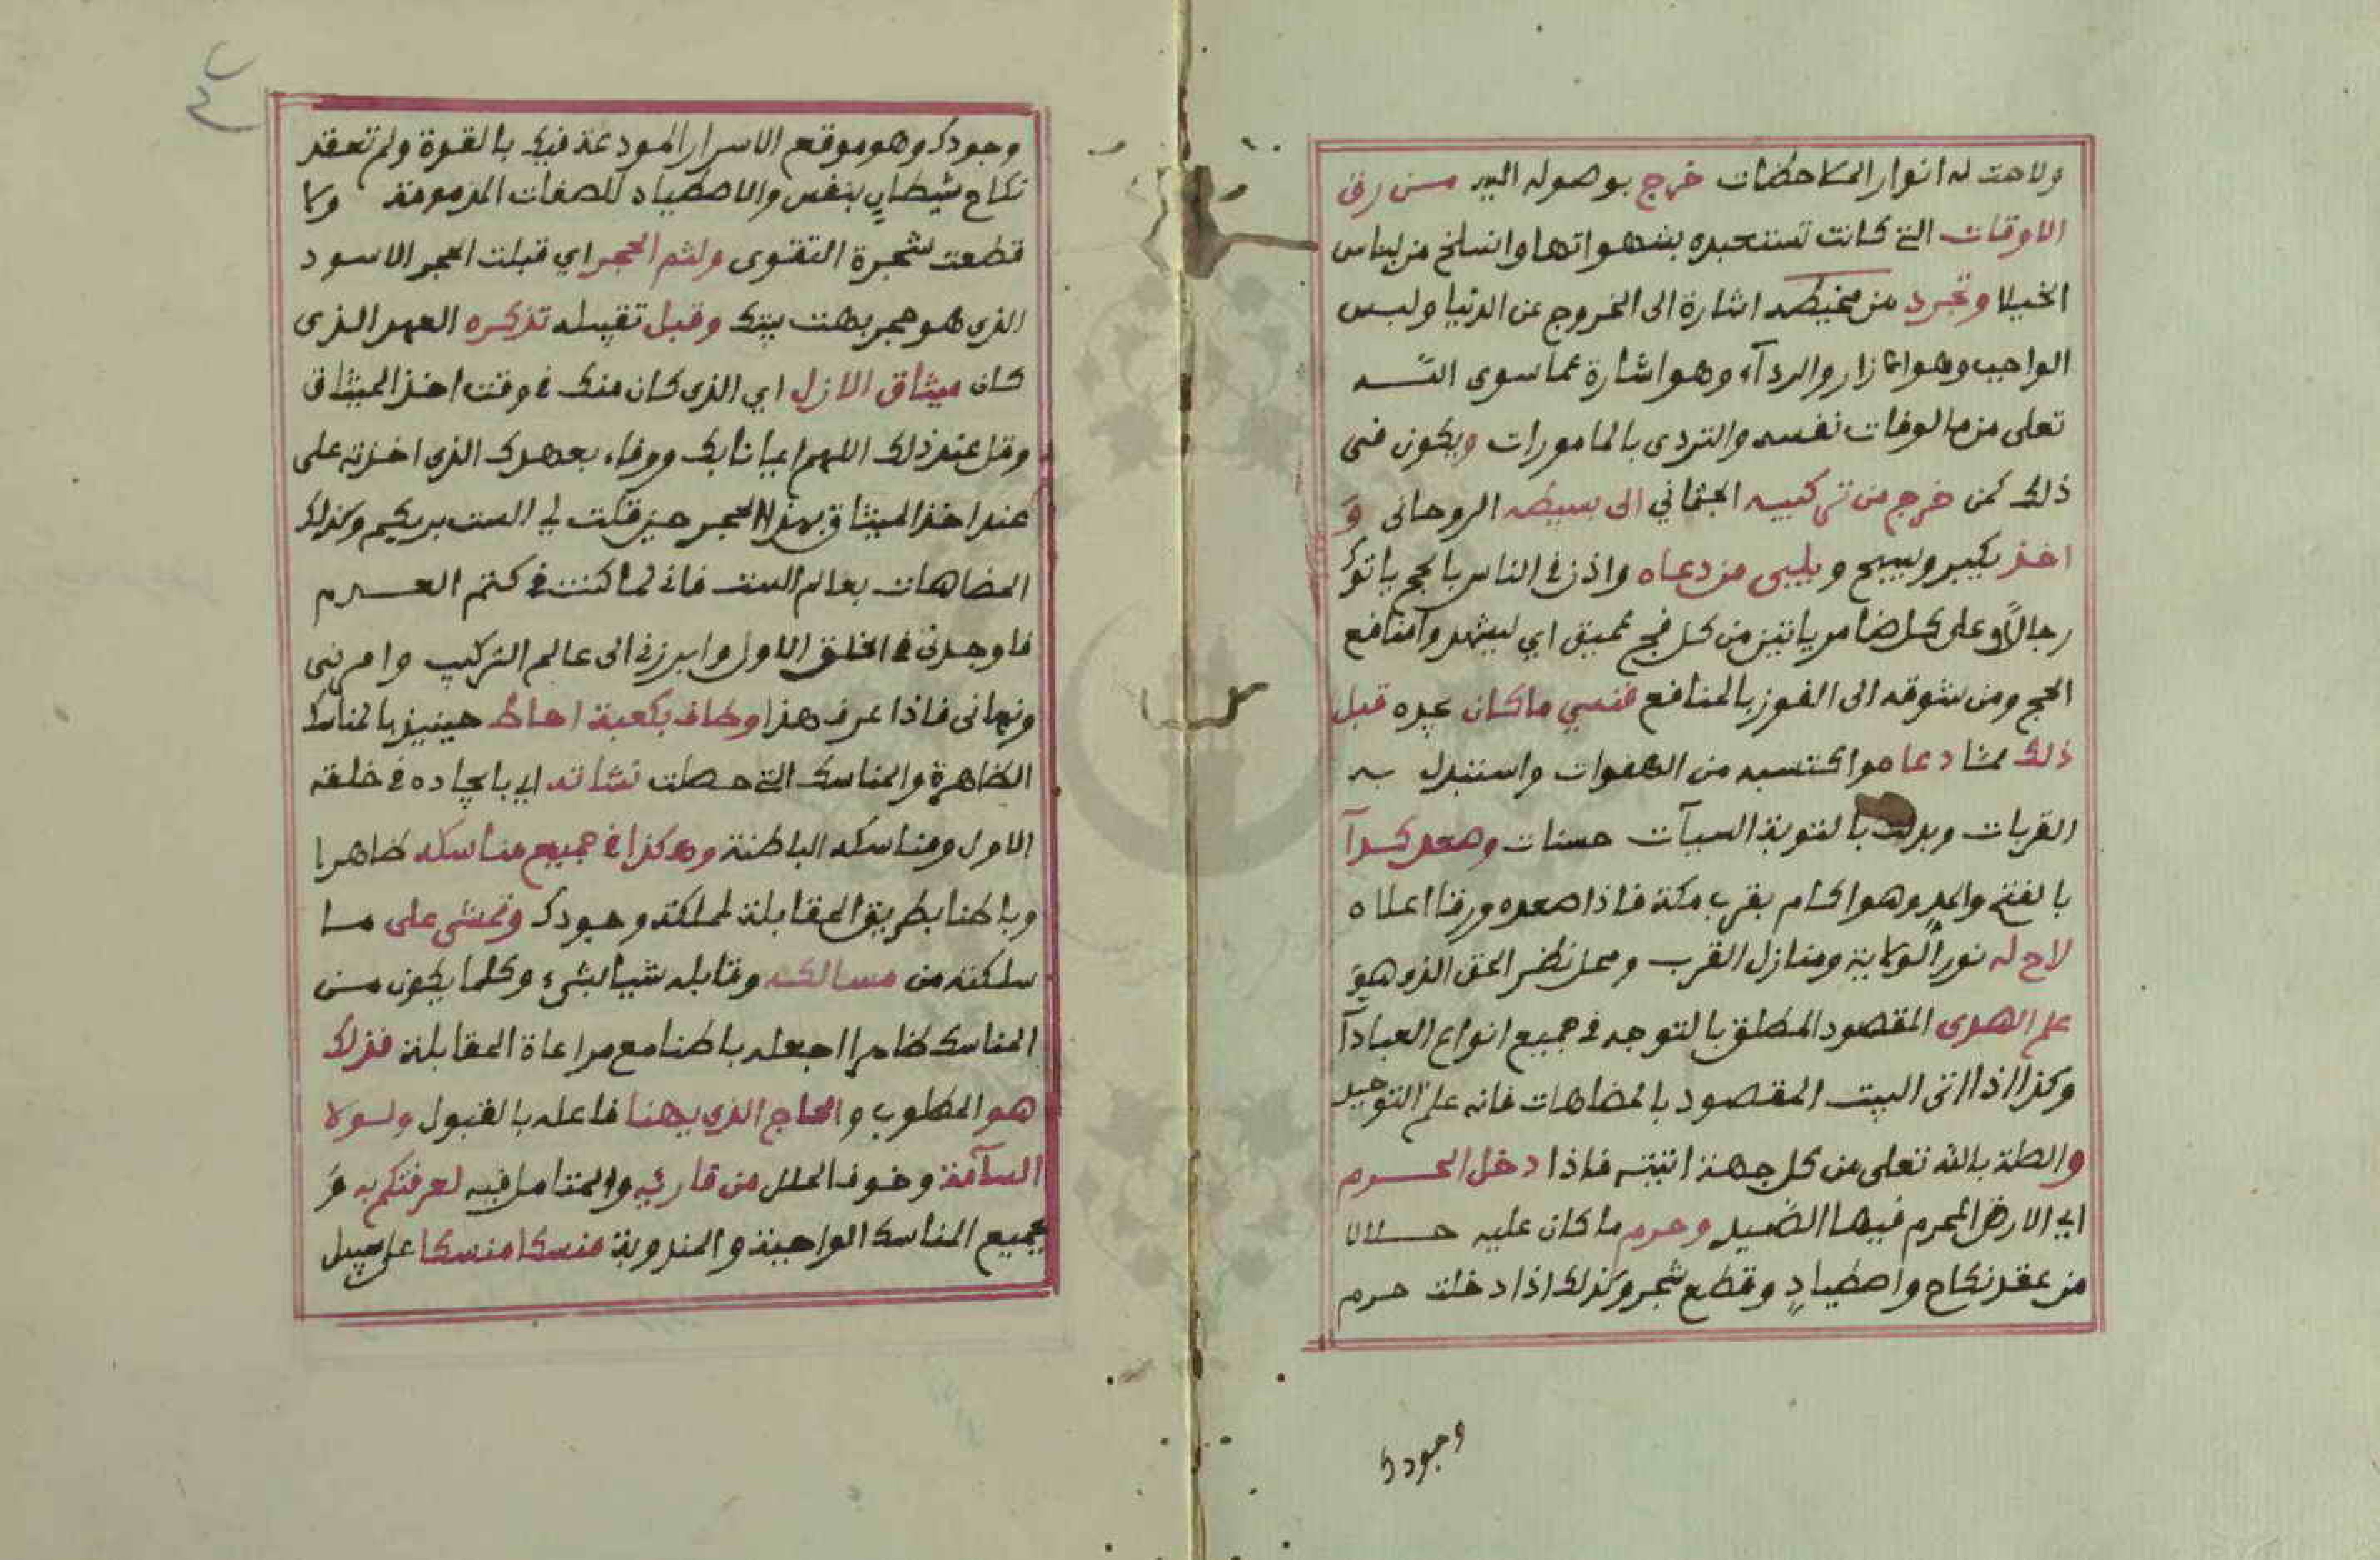 ولاحت له انوار الملاحظات خرج بوصوله اليه مسن رق
الاوقات التي كانت تستعبده بشهواتها وانسلخ من لباس
الخيلا وتجرد من مخيطه اشارة الى الخروج عن الدنيا ولبس
الواجب وهو الازار والردآء وهو اشارة عما سوى الله
تعلى من مالوفات نفسه والتردى بالمامورات ويكون فى
ذلك كمن خرج من تركيبه الجثماني الى بسيطه الروحانى وَ
اخذ يكبر ويسبح ويلبى من دعاه واذن في الناس بالحج ياتوك
رجالاً وعلى كل ضامر ياتين من كل فج عميق اي ليشهدوا منافع
الحج ومن شوقه الى الفوز بالمنافع فنسي ماكان عبده قبل
ذلك مما دعاه واكتسبه من الهفوات واستبدل به
القربات وبدلت بالتوبة السيآت حسنات وصعد كدآ
بالفتح والمد وهو اكام بقرب مكة فاذا صعده ورقا اعلاه
لاح له نور الولاية ومنازل القرب ومحل نظر الحق الذى هو
علم الهدى المقصود المطلق بالتوجه في جميع انواع العبادآ
وكذا اذا اتى البيت المقصود بالمضاهات فانه علم التوحيد
والطة بالله تعلى من كل جهة اتيته فاذا دخل الحرم
اي الارض المحرم فيها الصيد وحرم ما كان عليه حلالا
من عقد نكاح واصطيادٍ وقطع شجر وكذلك اذا دخلت حرم
وجودك
وجودك وهو موقع الاسرار المودعة فيك بالقوة ولم تعقد
نكاح شيطانٍ بنفس والاصطياد للصفات المذمومة ولا
قطعت شجرة التقوى ولثم الحجر اي قبلت الحجر الاسود
الذى هو حجر بهت بيتك وقبل تقبيله تذكره العهد الذى
كان ميثاق الازل اي الذى كان منك في وقت اخذ الميثاق
وقل عند ذلك اللهم ايمانا بك ووفاء بعهدك الذى اخذته على
عند اخذ الميثاق بهذا الحجر حين قلت لي الست بربكم وكذلك
المضاهات بعالم الست فاني لما كنت في كتم العدم
فاوجدنى في الخلق الاول وابرزنى الى عالم التركيب وامرنى
ونهانى فاذا عرف هذا وطاف بكعبة احاط حينيذ بالمناسك
الظاهرة والمناسك التي حصلت نشاته اي بايجاده في خلقه
الاول ومناسكه الباطنة وهكذا في جميع مناسكه ظاهرا
وباطنا بطريق المقابلة لمملكة وجودك وتمشى على ما
سلكته من مسالكه وقابله شيا بشىء وكلما يكون من
المناسك ظاهرا اجعله باطنا مع مراعاة المقابلة فذلك
هو المطلوب والحاج الذى يهنا فاعله بالقبول ولولا
السآمة وخوف الملل من قاريه والمتامل فيه لعرفتكم به وَ
بجميع المناسك الواجبة والمندوبة منسكا منسكا على سبيل